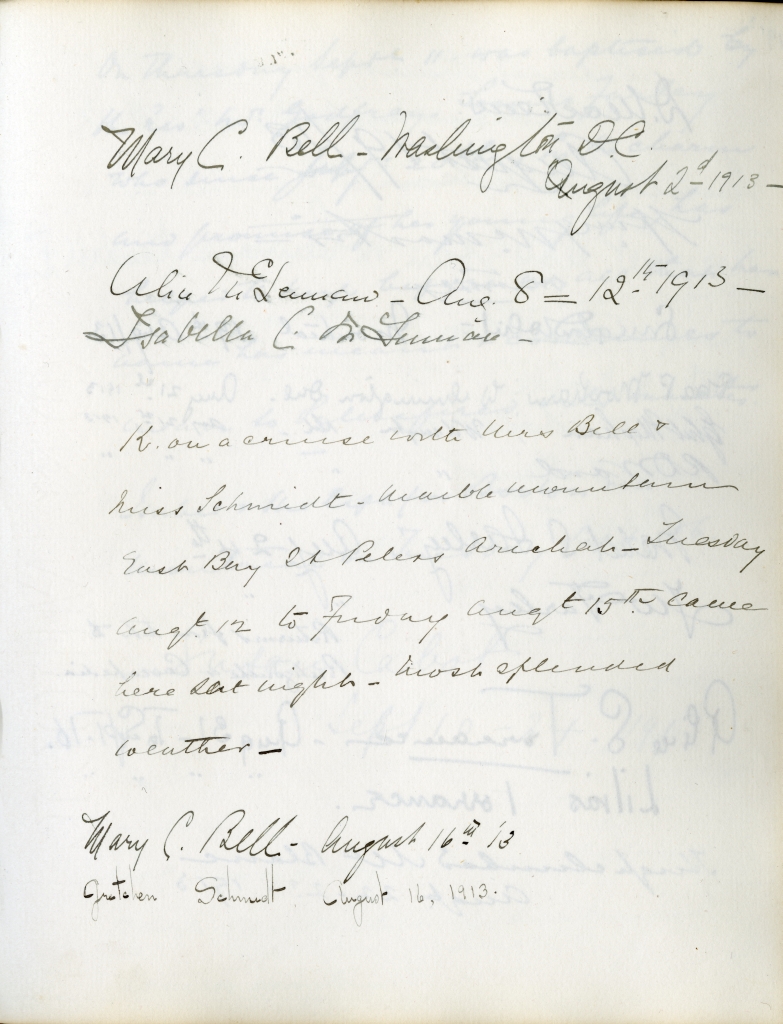 Mary C. Bell - Washington D.C.
August 2d 1913 -
Alice McLennan - Aug. 8 = 12th 1913 -
Isabella C. McLennan -
K. on a cruise with Mrs Bell &
Miss Schmidt - Marble mountain
East Bay St Peters Arichat - Tuesday
Augt. 12 to Friday Augt 15th. Came
here Sat night - Most splendid
weather -
Mary C. Bell - August 16th '13
Gretchen Schmidt August 16, 1913.